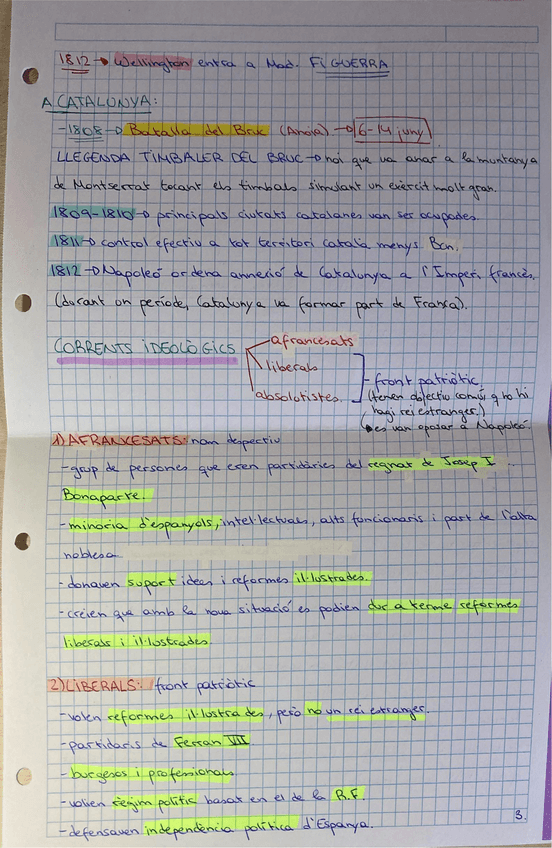 1812 → Wellington entra a Mad. FI GUERRA
A CATALUNYA:
-1808→ Batalla del Bruc (Anoia) → 6-14 juny
LLEGENDA TIMBALER DEL BRUC → noi que va anar a la muntanya
de Montserrat tocant els timbals simulant un exèrcit molt gran.
1809-1810→ principals ciutats catalanes van ser ocupades.
1811→ control efectiu a tot territori català menys Bcn.
1812 → Napoleó ordena annexió de Catalunya a l'Imperi francès.
(durant un període, Catalunya va formar part de França).
CORRENTS IDEOLÒGICS
afrancesats
liberals
absolutistes
- front patriòtic
(tenen objectiu comú q no hi
hagi rei estranger.)
↳ es van oposar a Napoleó.
1) AFRANCESATS: nom despectiu
-grup de persones que eren partidàries del regnat de Josep I
Bonaparte.
-minoria d'espanyols, intel·lectuals, alts funcionaris i part de l'alta
noblesa
-donaven suport idees i reformes il·lustrades.
-creien que amb la nova situació es podien dur a terme reformes
liberals i il·lustrades
2) LIBERALS: front patriòtic
-volen reformes il·lustrades, però no un rei estranger.
-partidaris de Ferran VII
-burgesos i professionals.
-volien règim polític basat en el de la R.F.
-defensaven independència política d'Espanya.
3.